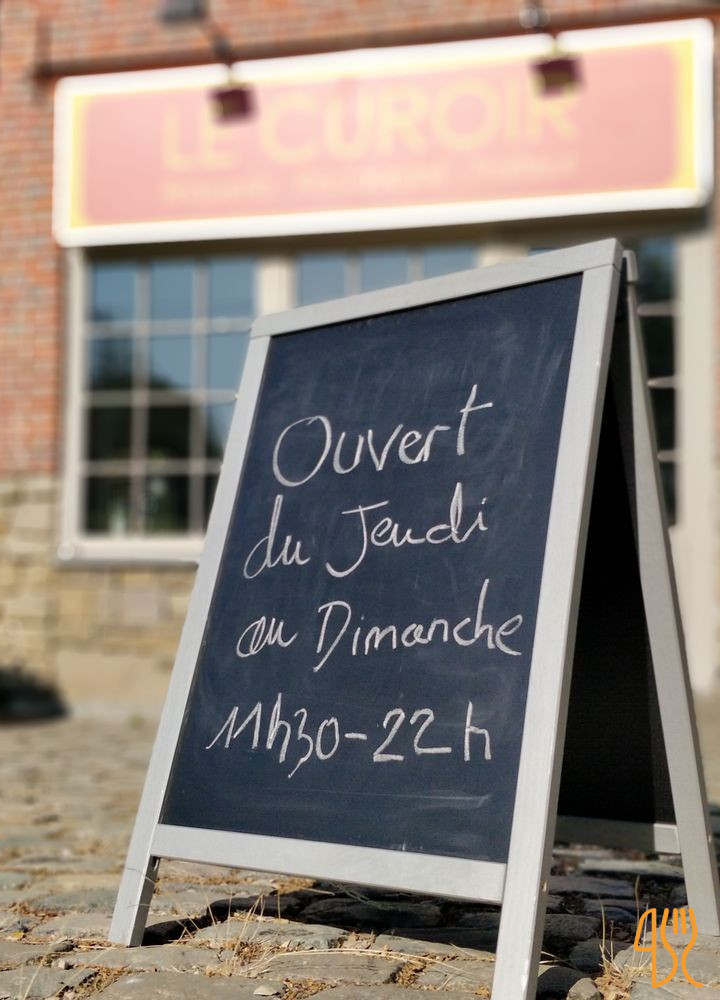 LE CUROIR
Ouvert
du Jeudi
au Dimanche
11h30-22h